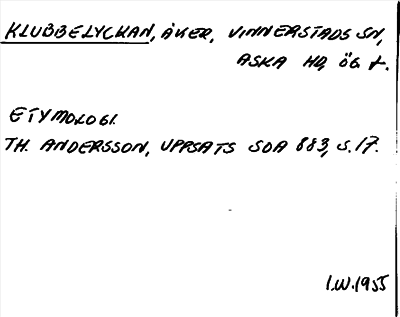 KLUBBELYCKAN, ÅKER, VINNERSTADS SN,
ASKA HD, ÖG L.
ETYMOLOGI.
TH. ANDERSSON, UPPSATS SOA 883, S.17.
I.W.1955